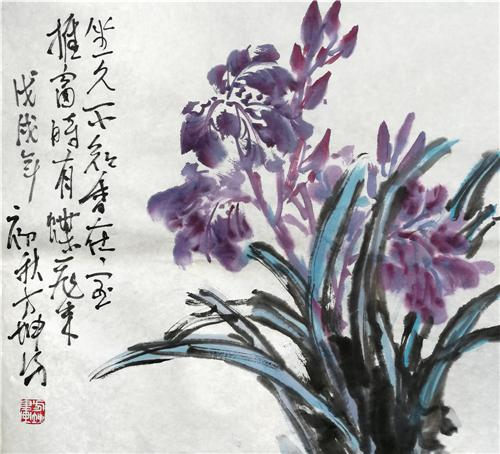 坐久不知香在室
推窗時有蝶飛来
戊戌年
初秋方坤